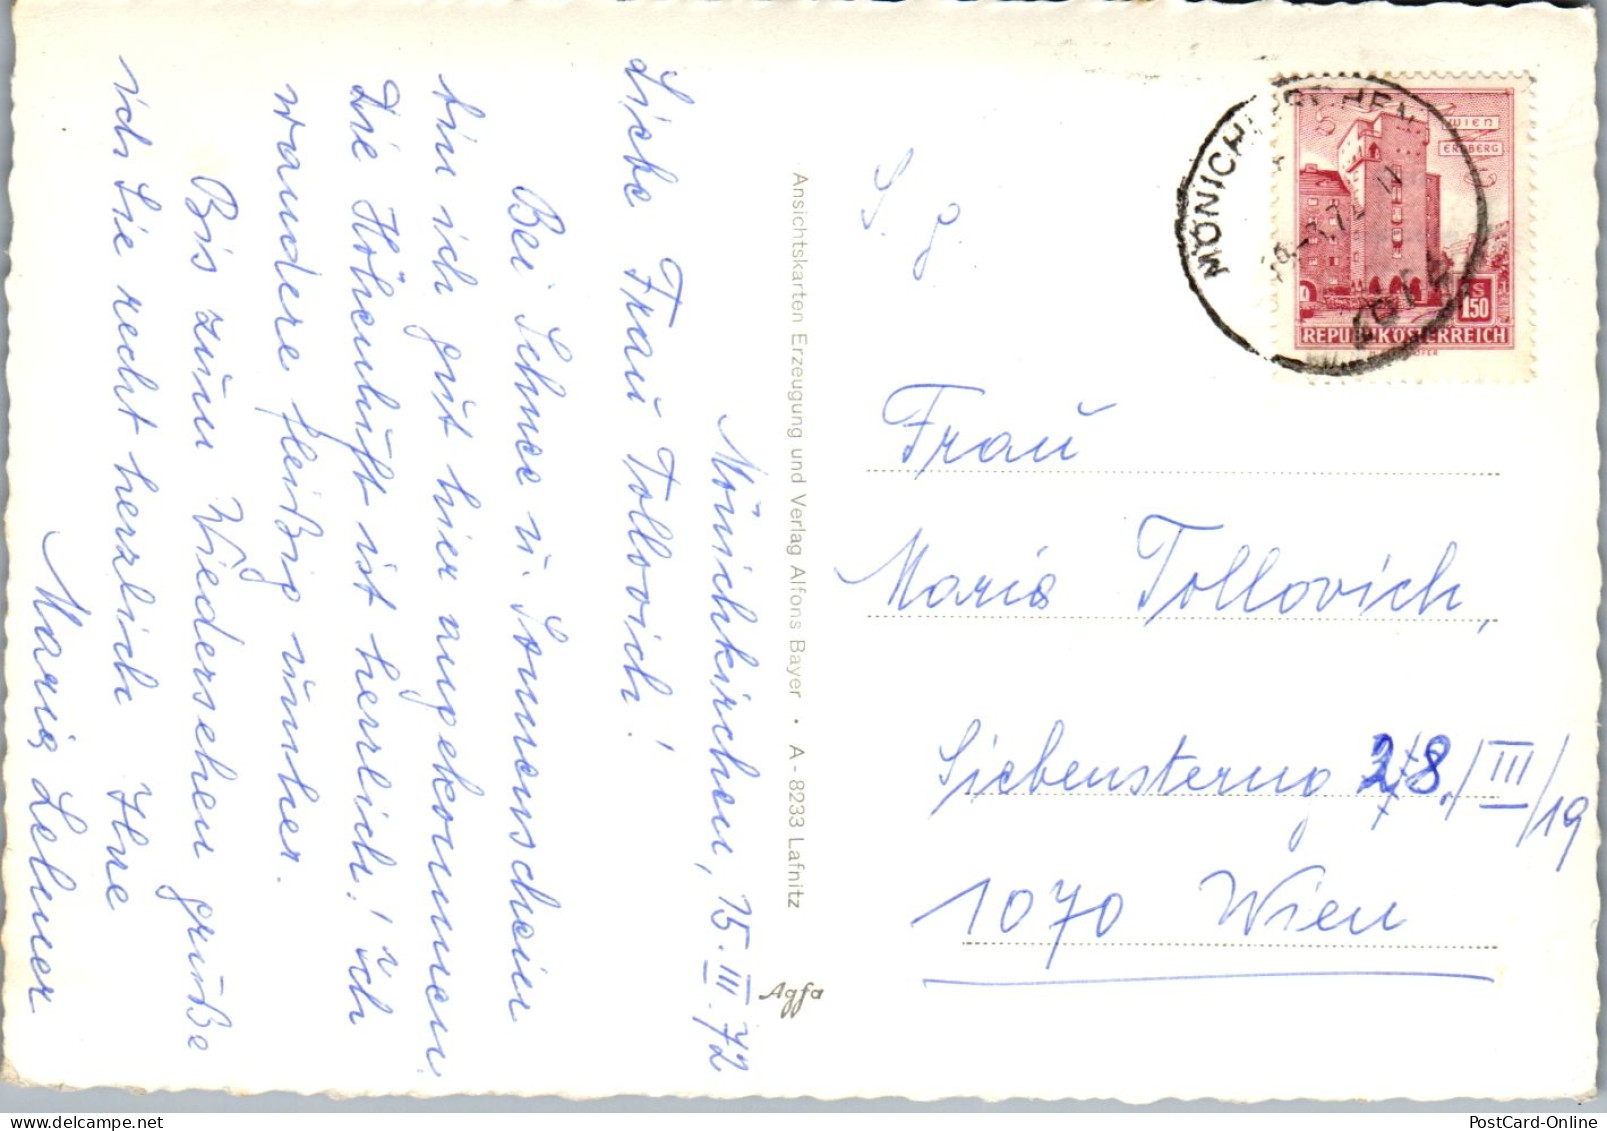 Mönichkirchen, 15.III.72
Liebe Frau Tollovich!
Bei Schnee u. Sonnenschein
bin ich gut hier angekommen.
Die Höhenluft ist herrlich! Ich
wandere fleißig umher.
Bis zum Wiedersehen grüße
ich Sie recht herzlich Ihre
Maria Lehner
Ansichtskarten Erzeugung und Verlag Alfons Bayer • A-8233 Lafnitz
Agfa
S. g.
Frau
Maria Tollovich,
Siebensterng 28./III/19
1070 Wien
WIEN
ERDBERG
S
1.50
REPUBLIK ÖSTERREICH
MÖNICHKIRCHEN
PostCard-Online